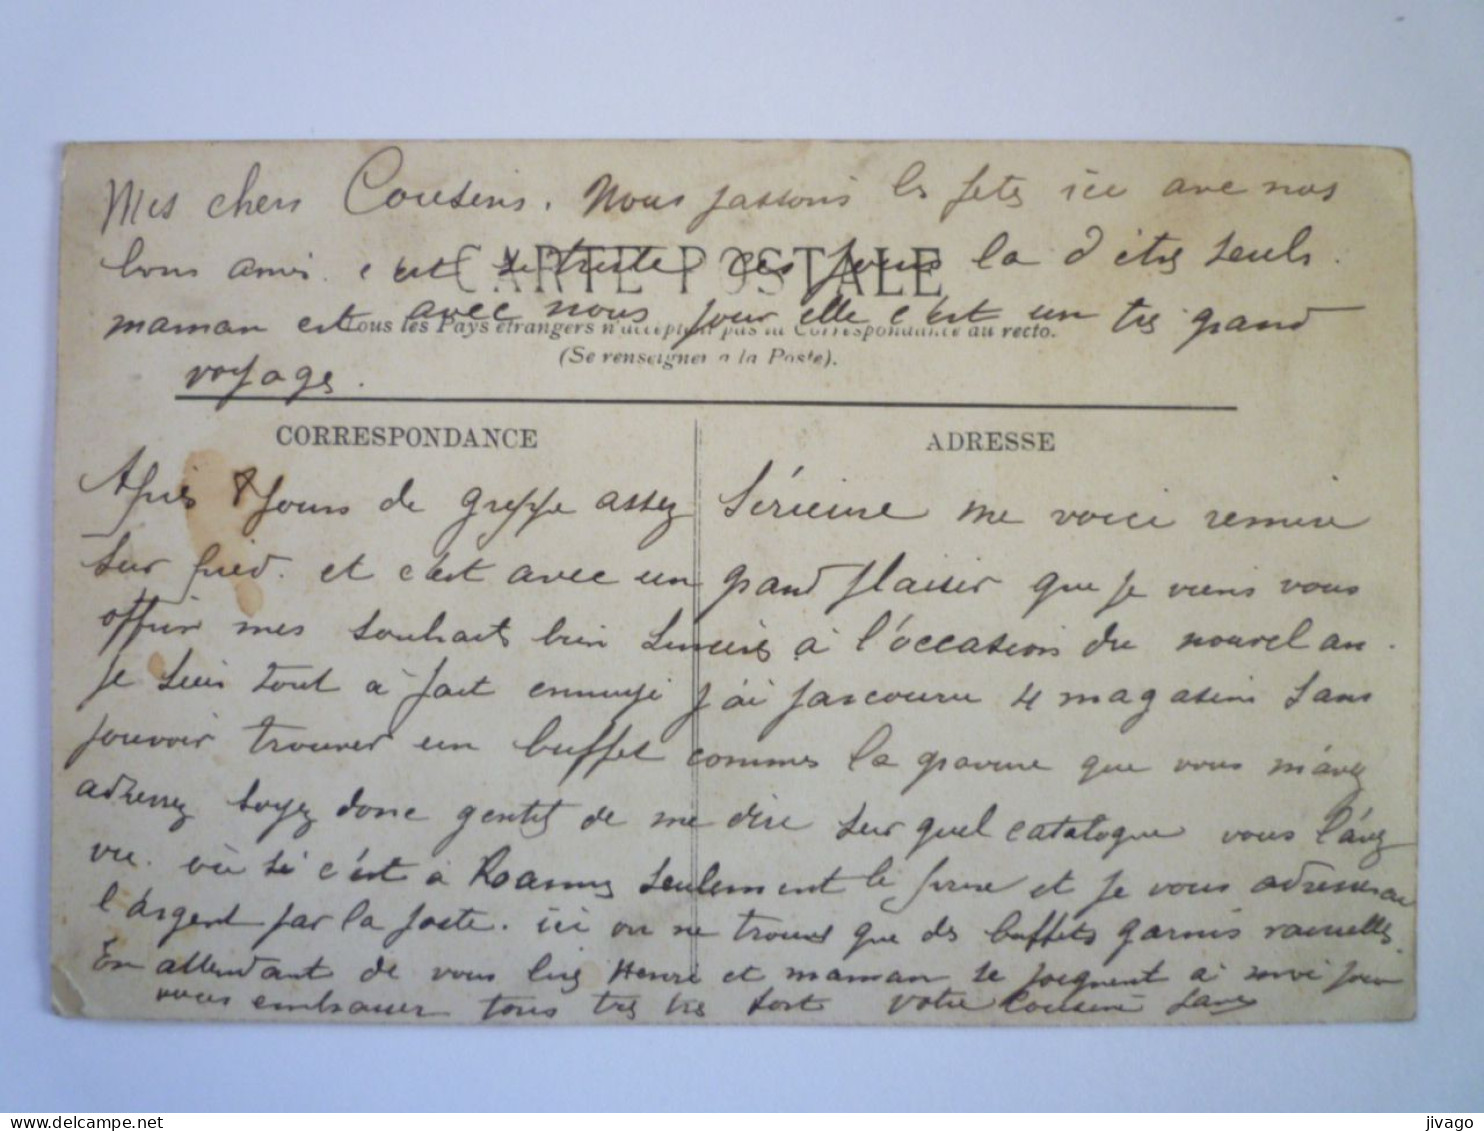 Mes chers Cousins. Nous passons les fetes ici avec nos
bons amis. c'est si triste ces jours la d'etre seuls.
CARTE POSTALE
maman est avec nous pour elle c'est un tres grand
Tous les Pays étrangers n'acceptent pas la Correspondance au recto.
(Se renseigner a la Poste).
voyage.
CORRESPONDANCE
ADRESSE
Après 8 jours de greppe assez sérieuse me voici remise
sur pied. et c'est avec un grand plaisir que je viens vous
offrir mes souhaits bien sincères à l'occasion du nouvel an.
je suis tout à fait ennuyé j'ai parcouru 4 magasins sans
pouvoir trouver un buffet comme la gravure que vous m'avez
adressez soyez donc gentils de me dire sur quel catalogue vous l'avez
vu. où si c'est à Roanne seulement le prix et je vous adresserai
l'argent par la poste. ici on ne trouve que des buffets garnis
En attendant de vous lire Henri et maman se joignent à moi pour
vous embrasser tous tres tres fort votre Cousine
jivago